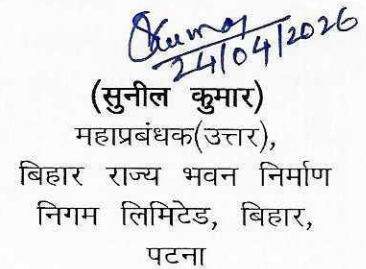 24/04/2026
(सुनील कुमार)
महाप्रबंधक(उत्तर),
बिहार राज्य भवन निर्माण
निगम लिमिटेड, बिहार,
पटना